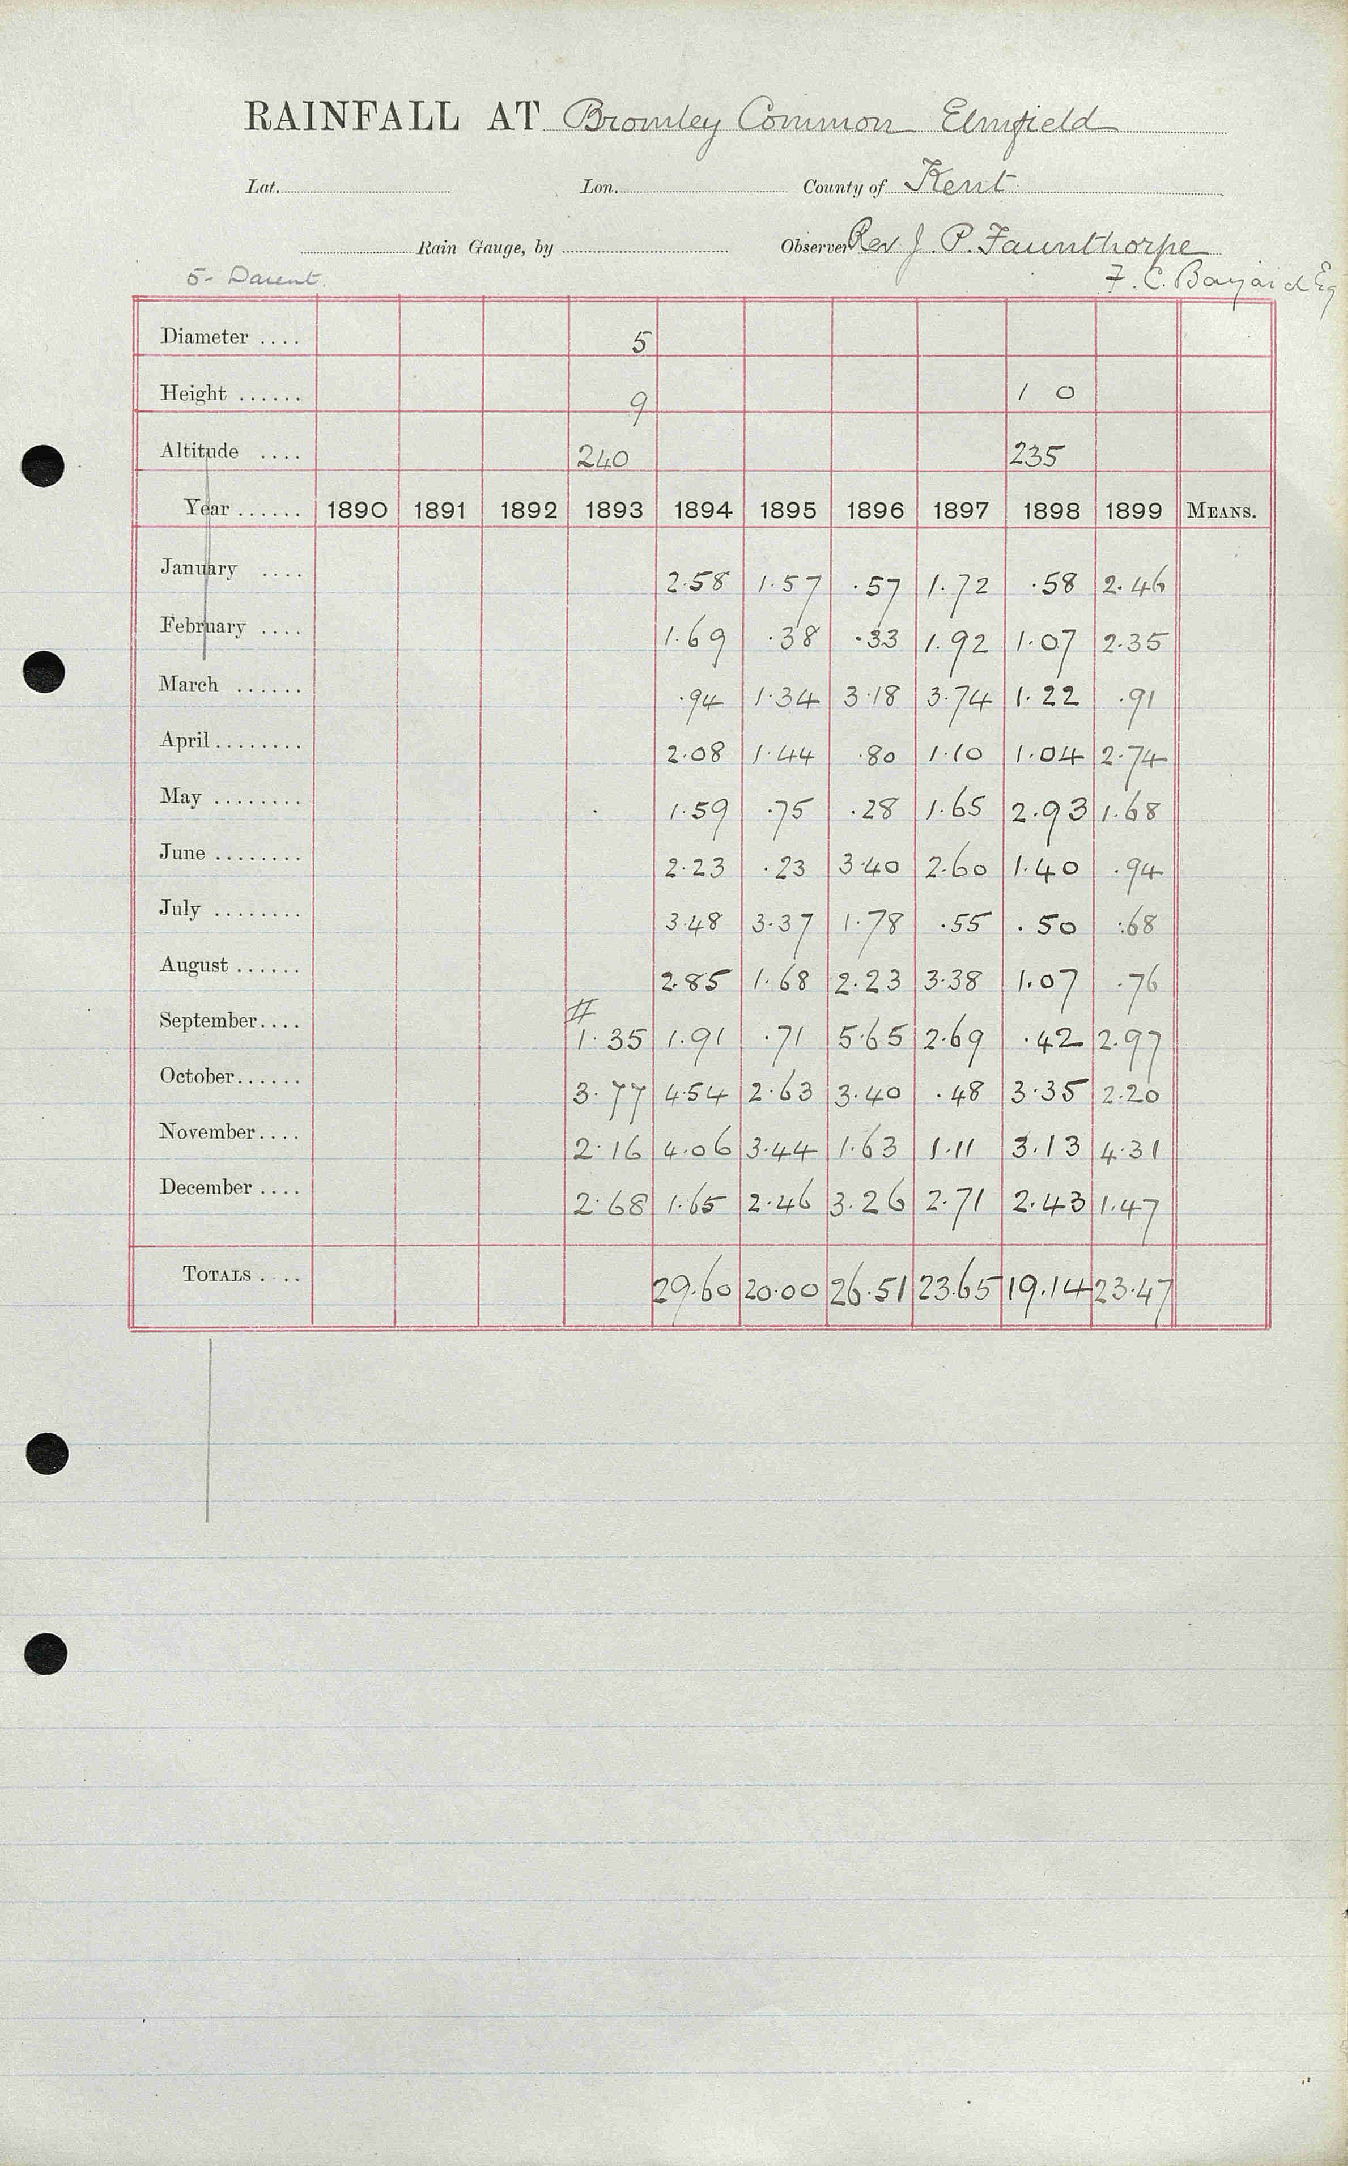 RAINFALL AT Bromley Common Elmfield
Lat. Lon. County of Kent
Rain Gauge, by Observer Rev J. P. Faunthorpe
5- Darent F. C. Bayard Esq
Diameter .... 5
Height ...... 9 1 0
Altitude .... 240 235
Year ...... 1890 1891 1892 1893 1894 1895 1896 1897 1898 1899 MEANS.
January .... 2.58 1.57 .57 1.72 .58 2.46
February .... 1.69 .38 .33 1.92 1.07 2.35
March ...... .94 1.34 3.18 3.74 1.22 .91
April ........ 2.08 1.44 .80 1.10 1.04 2.74
May ........ 1.59 .75 .28 1.65 2.93 1.68
June ........ 2.23 .23 3.40 2.60 1.40 .94
July ........ 3.48 3.37 1.78 .55 .50 .68
August ...... 2.85 1.68 2.23 3.38 1.07 .76
#
September.... 1.35 1.91 .71 5.65 2.69 .42 2.97
October...... 3.77 4.54 2.63 3.40 .48 3.35 2.20
November.... 2.16 4.06 3.44 1.63 1.11 3.13 4.31
December .... 2.68 1.65 2.46 3.26 2.71 2.43 1.47
TOTALS .... 29.60 20.00 26.51 23.65 19.14 23.47